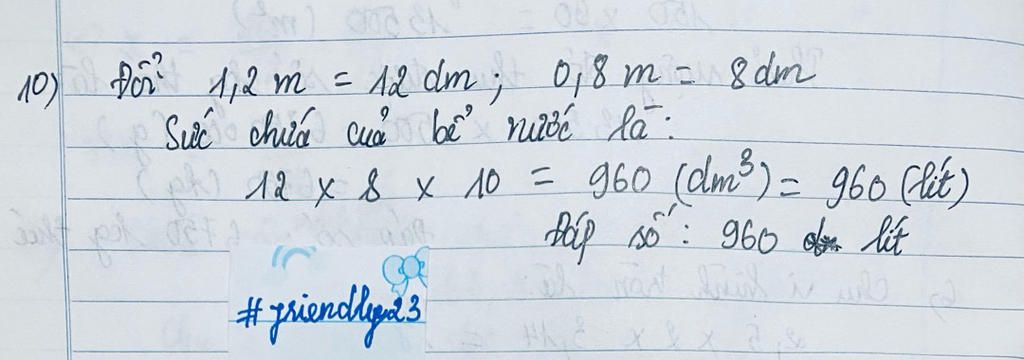 10) Đổi 1,2 m = 12 dm ; 0,8 m = 8 dm
Sức chứa của bể nước là :
12 x 8 x 10 = 960 (dm³) = 960 (lít)
Đáp số : 960 lít
#friendly23